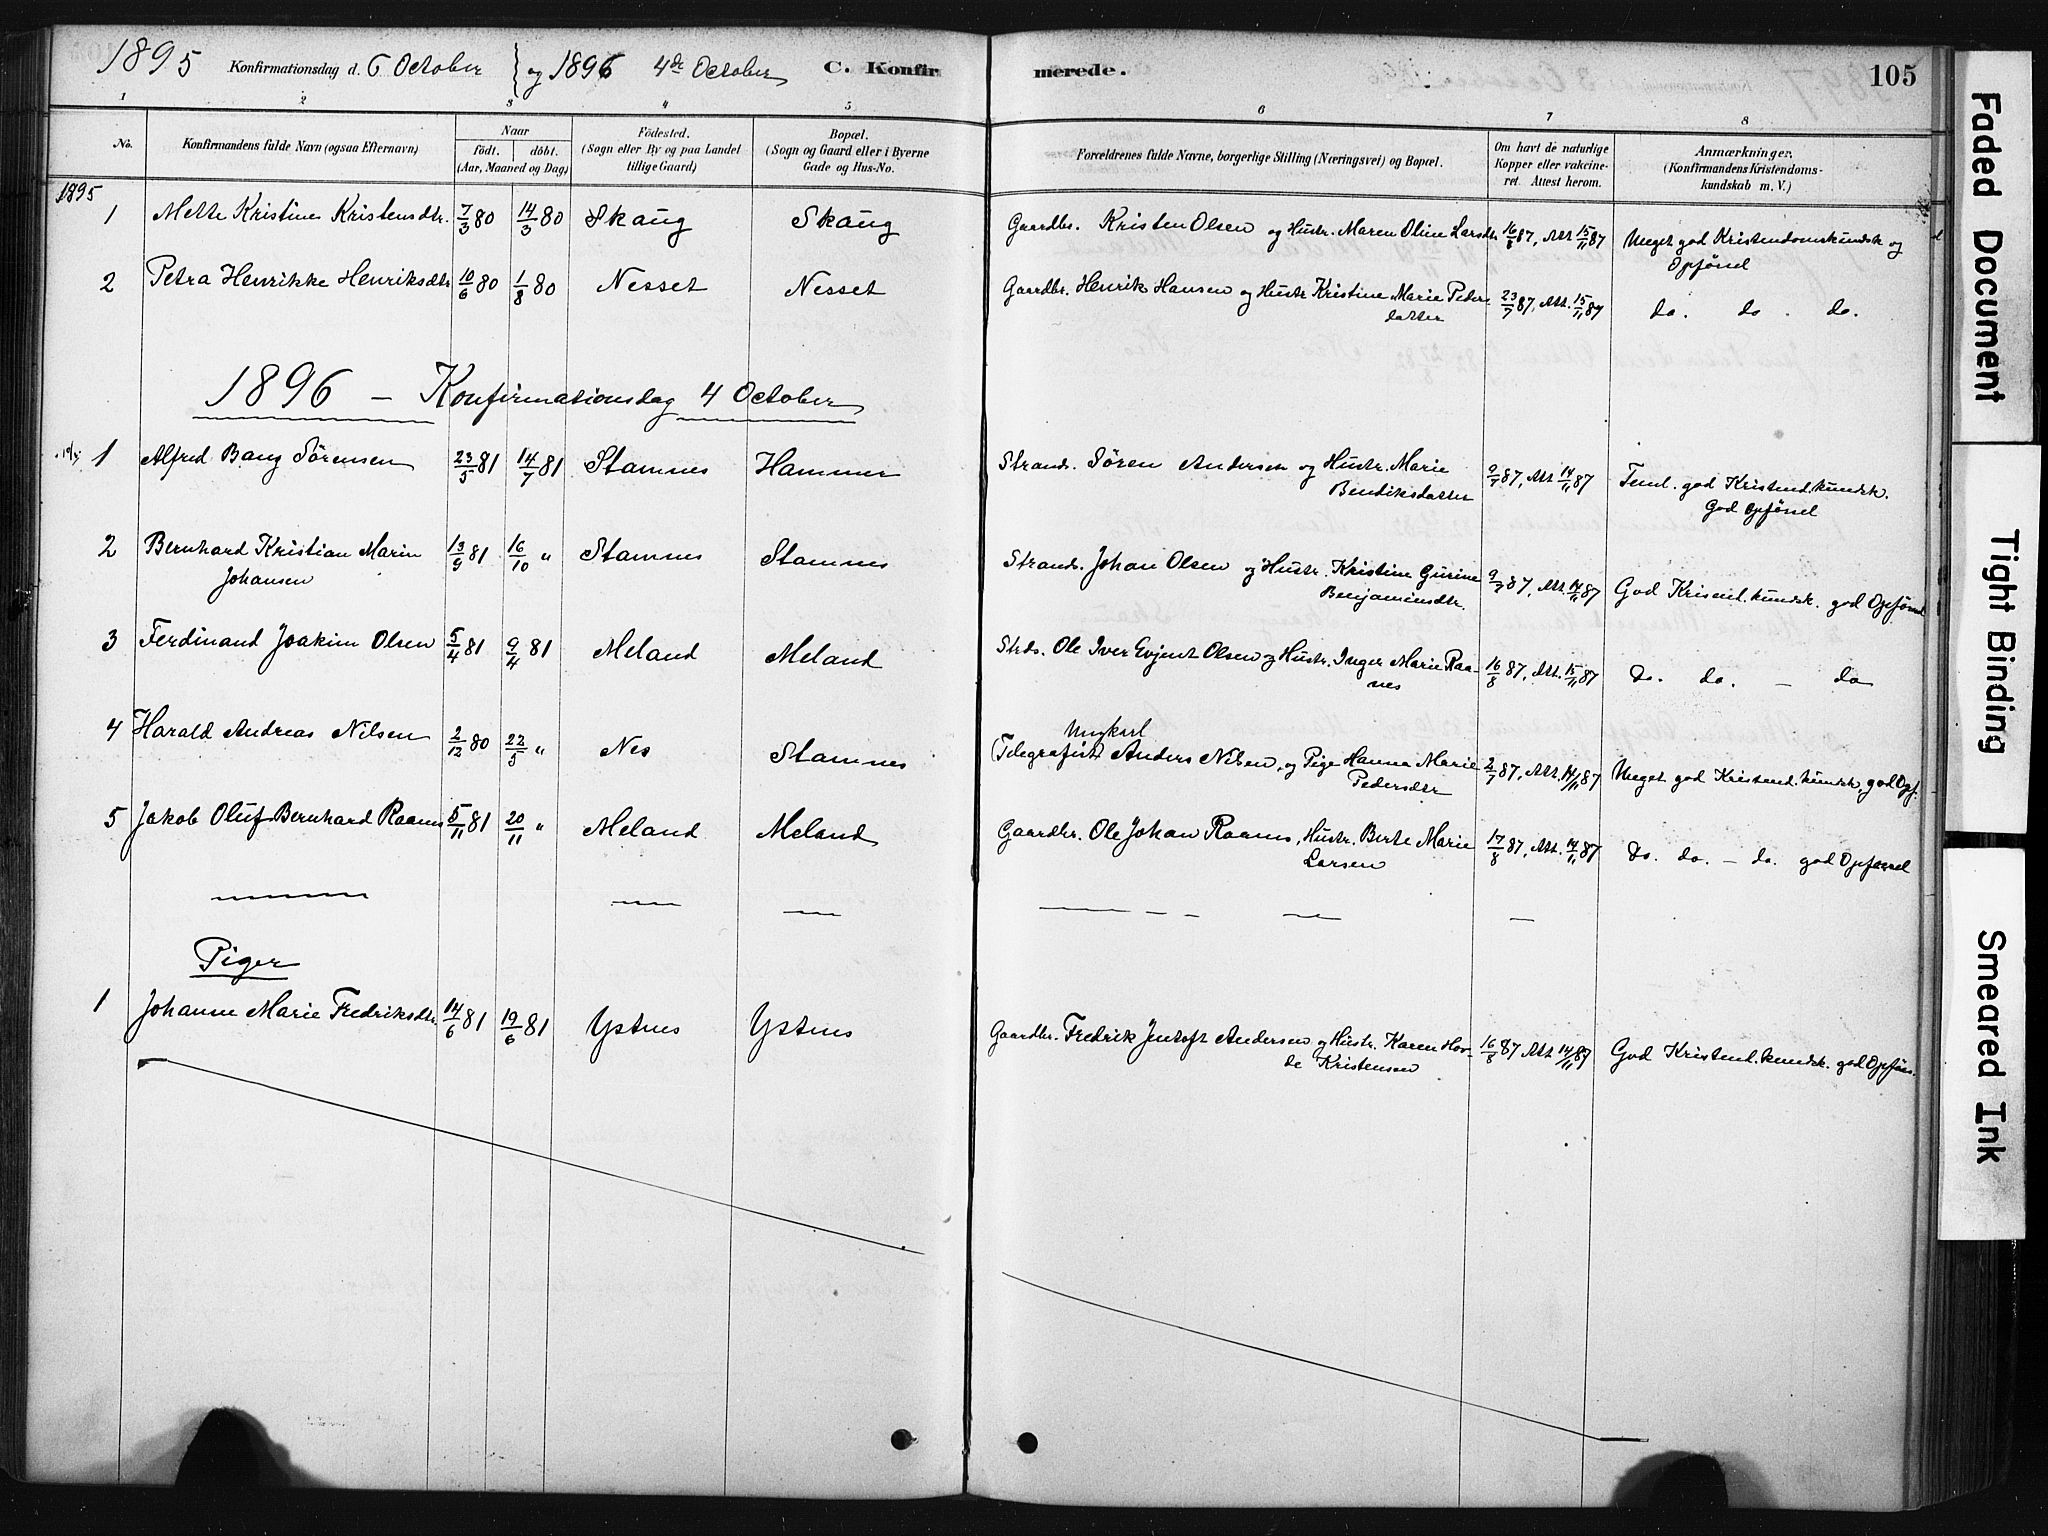 1895 Konfirmationsdag d. 6 October og 1896 4de October C. Konfirmerede. 105
1 2 3 4 5 6 7 8
No. Konfirmandens fulde Navn (ogsaa Efternavn) Naar födt. döbt. (Aar, Maaned og Dag) Födested. (Sogn eller By og paa Landet tillige Gaard) Bopæl. (Sogn og Gaard eller i Byerne Gade og Hus-No. Forældrenes fulde Navne, borgerlige Stilling (Næringsvei) og Bopæl. Om havt de naturlige Kopper eller vakcineret. Attest herom. Anmærkninger. (Konfirmandens Kristendomskundskab m. V.)
1895
1 Mette Kristine Kristensdtr. 7/3 80 14/3 80 Skaug Skaug Gaardbr. Kristen Olsen og Hustr. Maren Oline Larsdtr 16/8 87, Att. 15/11 87 Meget god Kristendomskundsk og
Opførsel
2 Petra Henrikke Henriksdtr 10/6 80 1/8 80 Nesset Nesset Gaardbr. Henrik Hansen og Hustr Kristine Marie Peders- 23/7 87, Att. 15/11 87 do. do. do.
datter
1896 – Konfirmationsdag 4 October
1 Alfred Bang Sörensen 23/5 81 14/7 81 Stamnes Hammer Strands. Sören Andersen og Hustr. Marie 9/7 87, Att 14/11 87 Teml. god Kristend.kundsk.
Bendiksdatter God Opförsel
2 Bernhard Kristian Marin 13/9 81 16/10 " Stamnes Stamnes Strands. Johan Olsen og Hustr. Kristine Gurine 9/7 87, Att. 14/11 87 God Kristend.kundsk. god Opförsel
Johansen Benjaminsdtr.
3 Ferdinand Joakim Olsen 5/4 81 9/4 81 Meland Meland Strds. Ole Iver Evjent Olsen og Hustr. Inger Marie Raa- 16/8 87, Att. 15/11 87 Do. do. – do
nes
4 Harald Andreas Nilsen 2/12 80 22/5 " Nes Stamnes Ungkarl
(Telegrafist) Anders Nilsen, og Pige Hanna Marie 2/7 87, Att. 14/11 87 Meget god Kristend.kundsk, god Opf.
Pedersdtr
5 Jakob Oluf Bernhard Raanes 5/11 81 20/11 " Meland Meland Gaardbr. Ole Johan Raanes, Hustr. Berte Marie 17/8 87, Att. 14/11 87 Do. do. – do. god Opførsel
Larsen
Piger
1 Johanne Marie Fredriksdtr. 14/6 81 19/6 81 Ystnes Ystnes Gaardbr. Fredrik Jentoft Andersen og Hustr. Karen Hov- 16/8 87 Att 14/11 87 God Kristend.kundsk. god Opförs.
de Kristensen
Faded Document
Tight Binding
Smeared Ink